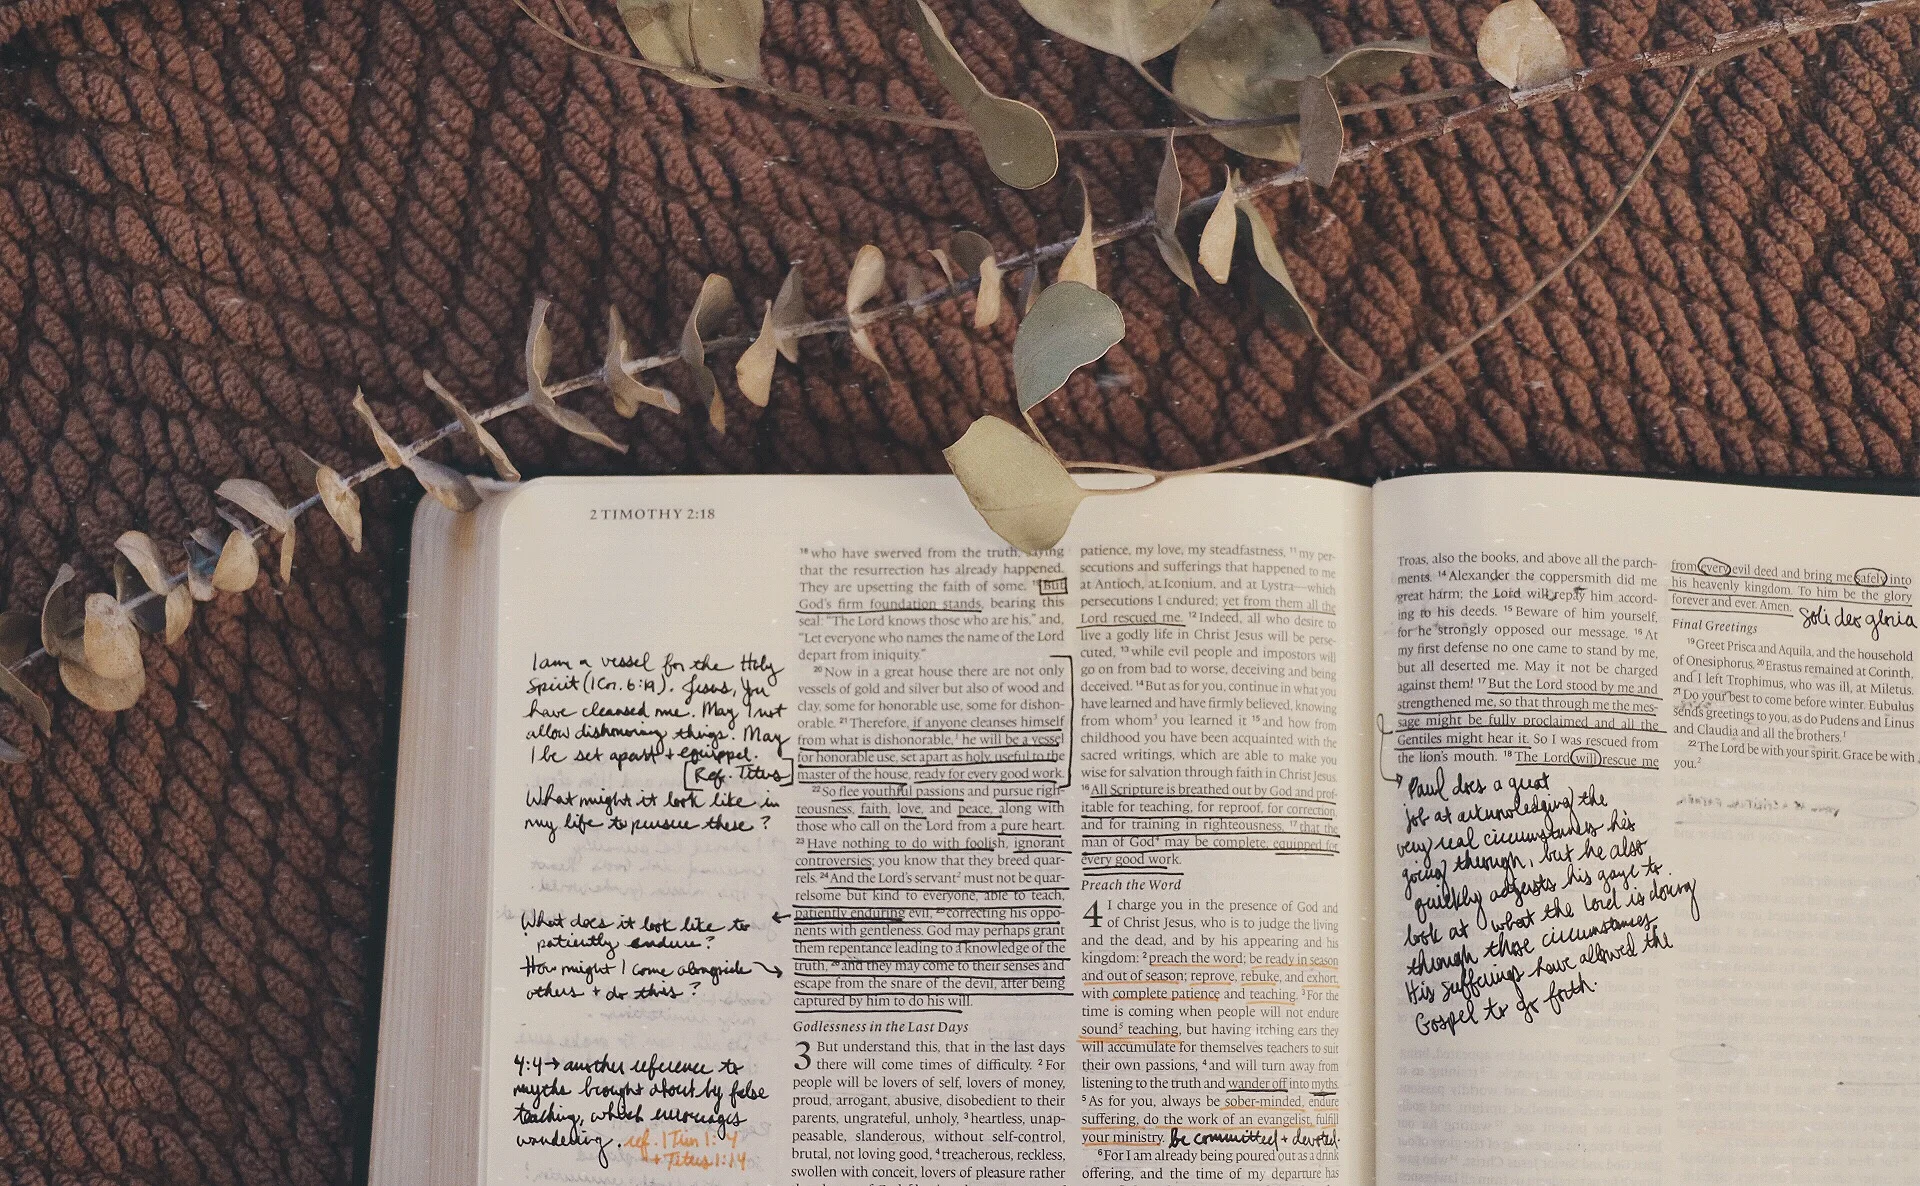 2 TIMOTHY 2:18
I am a vessel for the Holy
Spirit (1 Cor. 6:19). Jesus, You
have cleansed me. May I not
allow dishonoring things. May
I be set apart + equipped.
[Ref. Titus]
What might it look like in
my life to pursue these?
What does it look like to
patiently endure?
How might I come alongside
others + do this?
4:4 → another reference to
myths brought about by false
teaching, which encourages
wandering. ref. 1 Tim 1:4
+ Titus 1:14
18 who have swerved from the truth, saying
that the resurrection has already happened.
They are upsetting the faith of some. 19 But
God's firm foundation stands, bearing this
seal: “The Lord knows those who are his,” and,
“Let everyone who names the name of the Lord
depart from iniquity.”
20 Now in a great house there are not only
vessels of gold and silver but also of wood and
clay, some for honorable use, some for dishon-
orable. 21 Therefore, if anyone cleanses himself
from what is dishonorable,1 he will be a vessel
for honorable use, set apart as holy, useful to the
master of the house, ready for every good work.
22 So flee youthful passions and pursue righ-
teousness, faith, love, and peace, along with
those who call on the Lord from a pure heart.
23 Have nothing to do with foolish, ignorant
controversies; you know that they breed quar-
rels. 24 And the Lord's servant2 must not be quar-
relsome but kind to everyone, able to teach,
patiently enduring evil, 25 correcting his oppo-
nents with gentleness. God may perhaps grant
them repentance leading to a knowledge of the
truth, 26 and they may come to their senses and
escape from the snare of the devil, after being
captured by him to do his will.
Godlessness in the Last Days
3 But understand this, that in the last days
there will come times of difficulty. 2 For
people will be lovers of self, lovers of money,
proud, arrogant, abusive, disobedient to their
parents, ungrateful, unholy, 3 heartless, unap-
peasable, slanderous, without self-control,
brutal, not loving good, 4 treacherous, reckless,
swollen with conceit, lovers of pleasure rather
patience, my love, my steadfastness, 11 my per-
secutions and sufferings that happened to me
at Antioch, at Iconium, and at Lystra—which
persecutions I endured; yet from them all the
Lord rescued me. 12 Indeed, all who desire to
live a godly life in Christ Jesus will be perse-
cuted, 13 while evil people and impostors will
go on from bad to worse, deceiving and being
deceived. 14 But as for you, continue in what you
have learned and have firmly believed, knowing
from whom3 you learned it 15 and how from
childhood you have been acquainted with the
sacred writings, which are able to make you
wise for salvation through faith in Christ Jesus.
16 All Scripture is breathed out by God and prof-
itable for teaching, for reproof, for correction,
and for training in righteousness, 17 that the
man of God4 may be complete, equipped for
every good work.
Preach the Word
4 I charge you in the presence of God and
of Christ Jesus, who is to judge the living
and the dead, and by his appearing and his
kingdom: 2 preach the word; be ready in season
and out of season; reprove, rebuke, and exhort,
with complete patience and teaching. 3 For the
time is coming when people will not endure
sound5 teaching, but having itching ears they
will accumulate for themselves teachers to suit
their own passions, 4 and will turn away from
listening to the truth and wander off into myths.
5 As for you, always be sober-minded, endure
suffering, do the work of an evangelist, fulfill
your ministry. be committed + devoted.
6 For I am already being poured out as a drink
offering, and the time of my departure has
Troas, also the books, and above all the parch-
ments. 14 Alexander the coppersmith did me
great harm; the Lord will repay him accord-
ing to his deeds. 15 Beware of him yourself,
for he strongly opposed our message. 16 At
my first defense no one came to stand by me,
but all deserted me. May it not be charged
against them! 17 But the Lord stood by me and
strengthened me, so that through me the mes-
sage might be fully proclaimed and all the
Gentiles might hear it. So I was rescued from
the lion's mouth. 18 The Lord will rescue me
Paul does a great
job at acknowledging the
very real circumstances his
going through, but he also
quickly adjusts his gaze to
look at what the Lord is doing
through those circumstances.
His sufferings have allowed the
Gospel to go forth.
from every evil deed and bring me safely into
his heavenly kingdom. To him be the glory
forever and ever. Amen. Soli deo gloria
Final Greetings
19 Greet Prisca and Aquila, and the household
of Onesiphorus. 20 Erastus remained at Corinth,
and I left Trophimus, who was ill, at Miletus.
21 Do your best to come before winter. Eubulus
sends greetings to you, as do Pudens and Linus
and Claudia and all the brothers.1
22 The Lord be with your spirit. Grace be with
you.2